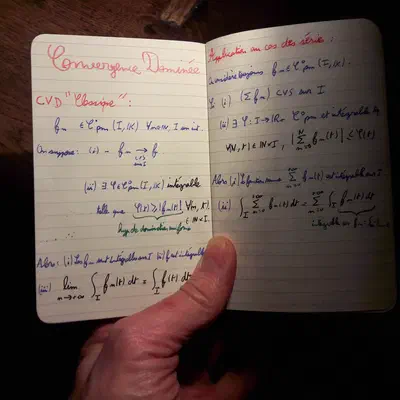 Convergence Dominée
CVD "Classique" :
fn ∈ C°pm (I, K) ∀n∈N, I un int.
On suppose : (i) - fn → f
(CVS)
sur I
(ii) ∃ φ ∈ C°pm (I, K) intégrable
telle que φ(t) ≥ |fn(t)| ∀(n, t)
∈ N×I.
hyp de domination
Alors : (i) Les fn sont intégrables sur I (ii) f est intégrable
(iii) lim ∫I fn(t) dt = ∫I f(t) dt
n→+∞
Application au cas des série :
On considère toujours fn ∈ C°pm (I, K).
Si (i) (Σ fn) CVS sur I
(ii) ∃ φ : I → R+ C°pm et intégrable tq
∀(N, t) ∈ N×I, |Σ fn(t)| ≤ φ(t)
Alors (i) La fonction somme Σ fn(t) est intégrable sur I.
(ii) ∫I Σ fn(t) dt = Σ ∫I fn(t) dt
intégrable